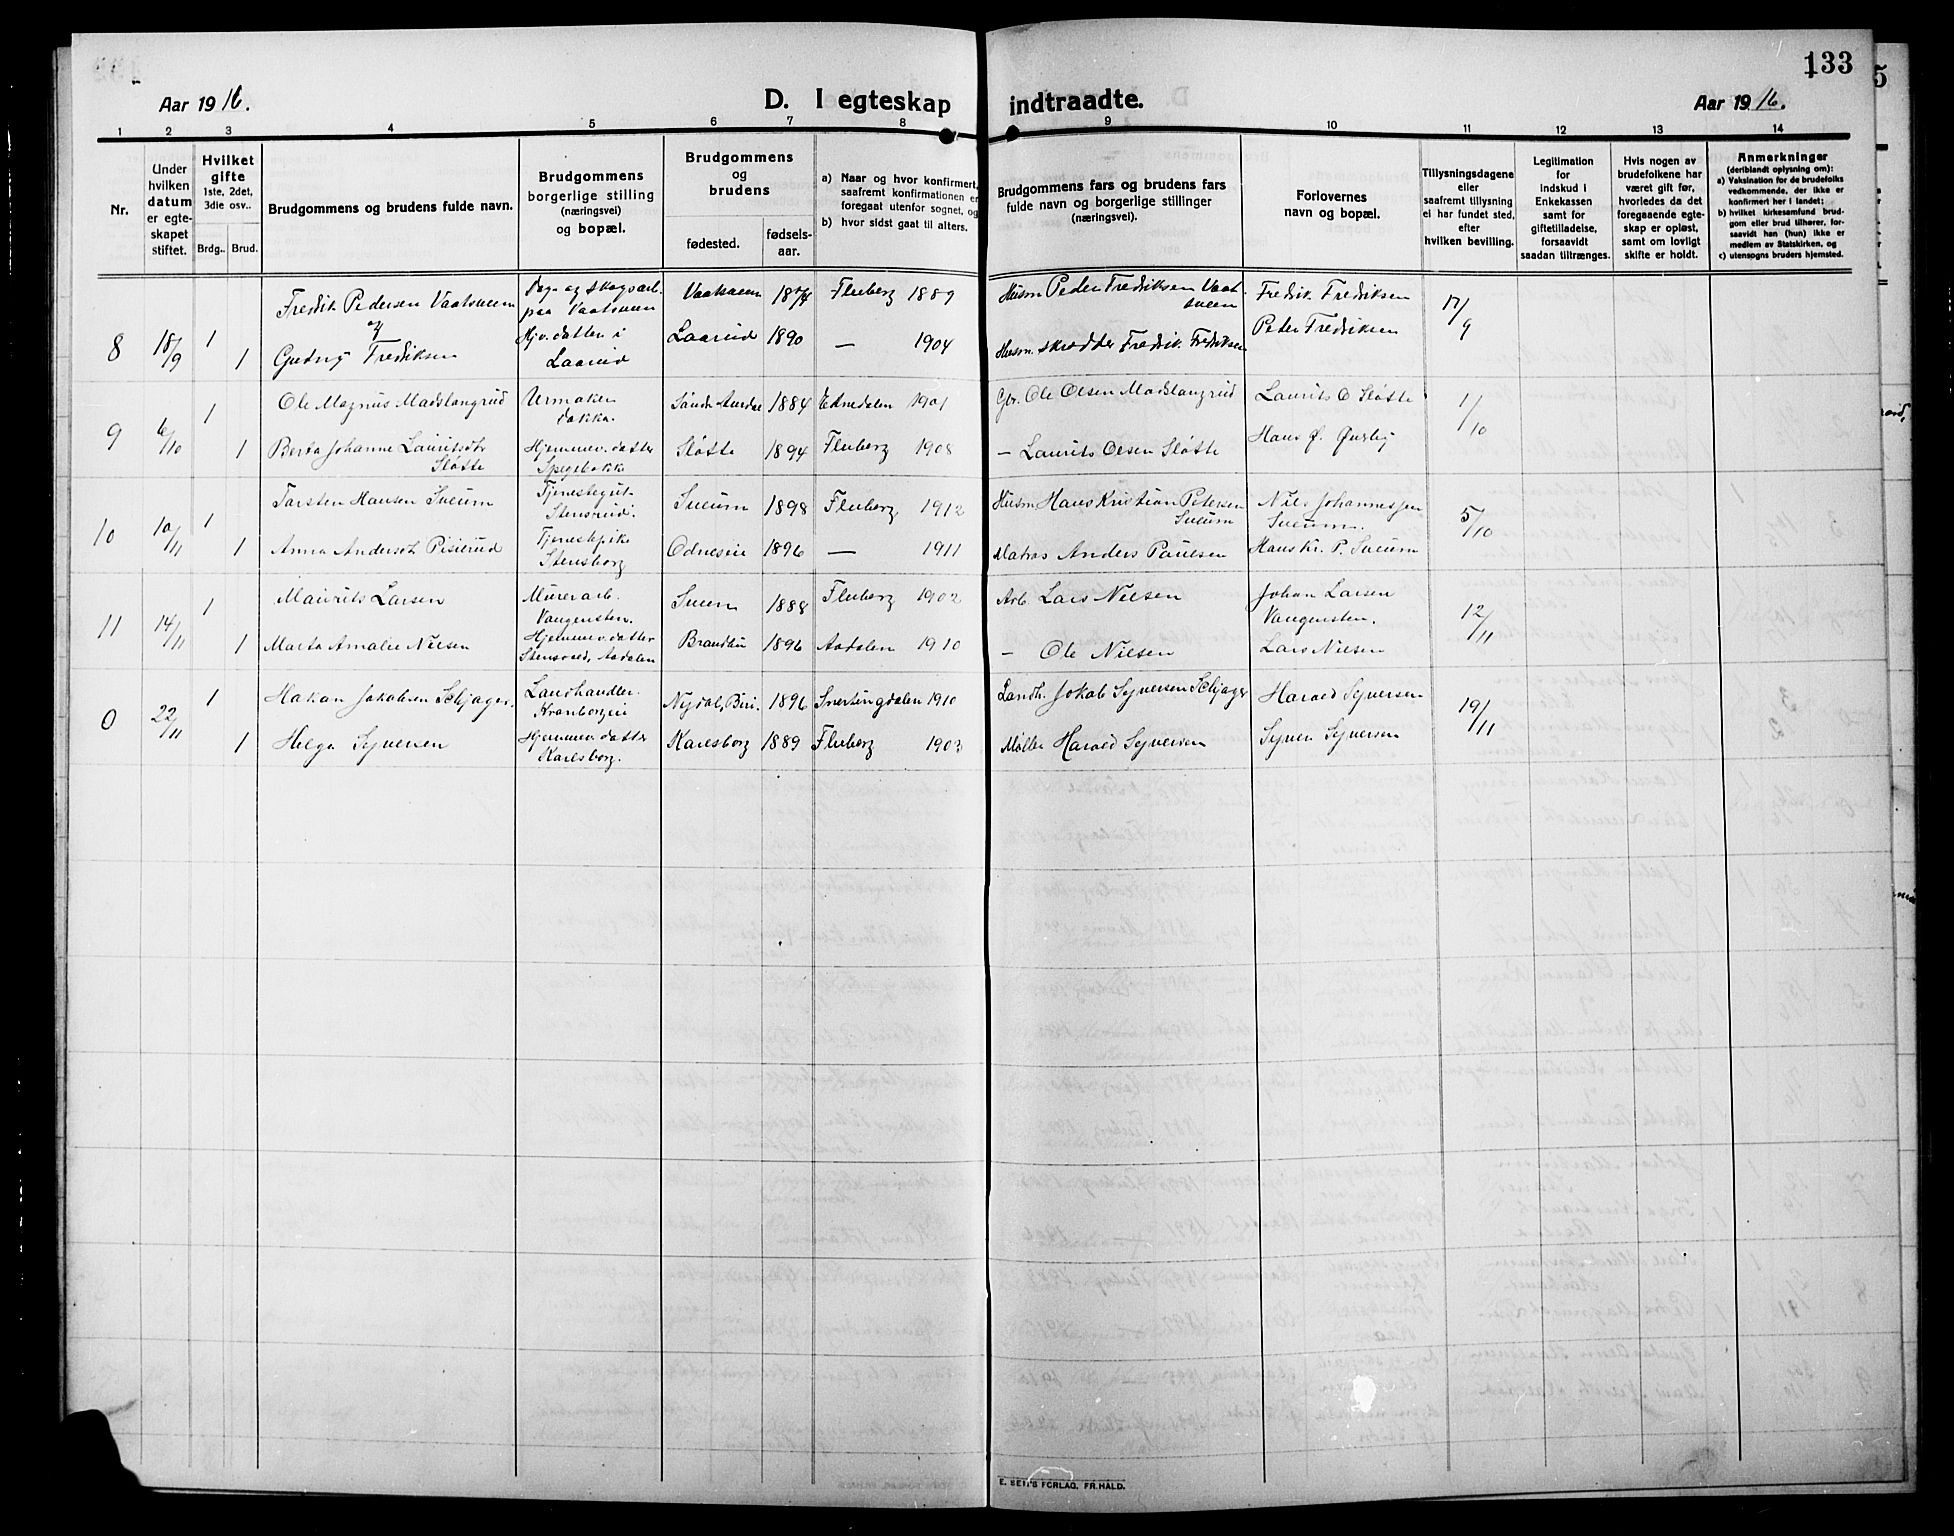 133
Aar 1916.
D. I egteskap indtraadte.
Aar 1916.
1 2 3 4 5 6 7 8 9 10 11 12 13 14
Nr.
Under hvilken datum er egte- skapet stiftet.
Hvilket gifte 1ste, 2det, 3die osv..
Brdg.. Brud.
Brudgommens og brudens fulde navn.
Brudgommens borgerlige stilling (næringsvei) og bopæl.
Brudgommens og brudens
fødested.
fødsels- aar.
a) Naar og hvor konfirmert, saafremt konfirmationen er foregaat utenfor sognet, og
b) hvor sidst gaat til alters.
Brudgommens fars og brudens fars fulde navn og borgerlige stillinger (næringsvei).
Forlovernes navn og bopæl.
Tillysningsdagene eller saafremt tillysning ei har fundet sted, efter hvilken bevilling.
Legitimation for Indskud i Enkekassen samt for giftetilladelse, forsaavidt saadan tiltrænges.
Hvis nogen av brudefolkene har været gift før, hvorledes da det foregaaende egte- skap er opløst, samt om lovligt skifte er holdt.
Anmerkninger (deriblandt oplysning om):
a) Vaksination for de brudefolks vedkommende, der ikke er konfirmert her i landet;
b) hvilket kirkesamfund brud- gom eller brud tilhører, for- saavidt han (hun) ikke er medlem av Statskirken, og
c) utensogns bruders hjemsted.
Fredrik Pedersen Vaatsveen Dag- og skogsarb. paa Vaatsveen Vaatsveen 1874 Fluberg 1889 Husm. Peder Fredriksen Vaatsveen Fredrik Fredriksen 17/9
og
8 18/9 1 1 Gudny Fredriksen Hjv. datter i Laarud Laarud 1890 — 1904 Husm. skrædder Fredrik Fredriksen Peter Fredriksen
Ole Magnus Madslangrud Urmaker Dokka. Søndr Aurdal 1884 Etnedalen 1901 Gbr. Ole Olsen Madslangrud Laurits O Sløtte 1/10
9 6/10 1 1 Berta Johanne Lauritsdtr Sløtte Hjemmev. datter Sløtte 1894 Fluberg 1908 – Laurits Olsen Sløtte Hans Ø.
Torsten Hansen Sveum Tjenestegut Stensrud. Sveum 1898 Fluberg 1912 Husm Hans Kristian Petersen Sveum Nils Johannesen Sveum. 5/10
10 10/11 1 1 Anna Andersdt Pisierud Tjenestepike Stensborg Odnesie 1896 — 1911 Matros Anders Paulsen Hans Kr. P. Sveum
Maurits Larsen Murerarb. Vangensten. Sveum 1888 Fluberg 1902 Arb. Lars Nielsen Johan Larsen Vangensten. 12/11
11 14/11 1 1 Marta Amalie Nielsen Hjemmev. datter Stensvold, Aadalen Brandbu 1896 Aadalen 1910 – Ole Nielsen Lars Nielsen
Hakan Jakobsen Schjager. Landhandler. Kronborgeie Nydal, Biri. 1896 Snertingdalen 1910 Landh. Jokob Syversen Schjager Harald Syversen 19/11
0 22/11 1 1 Helga Syversen Hjemmev. datter Karlsborg. Karlsborg 1889 Fluberg 1903 Møller Harald Syversen Syver Syversen
E. SEM'S FORLAG, FR.HALD.